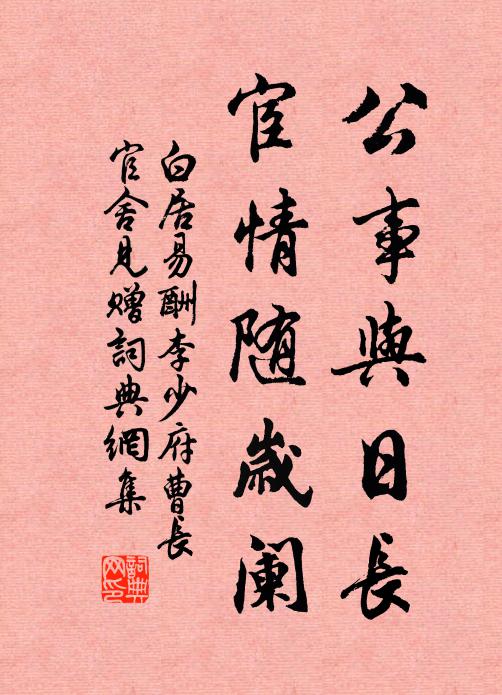 公事與日長
宦情隨歲闌
白居易酬李少府曹長
官舍見贈詞典網集
詞典
网印